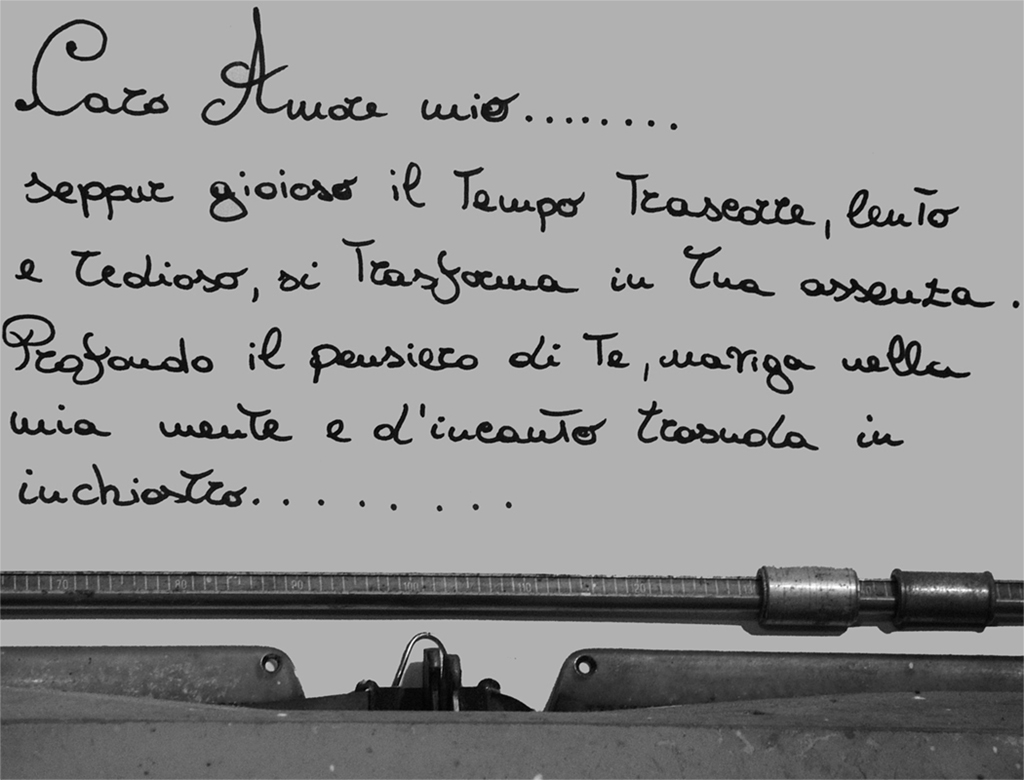 Caro Amore mio........
seppur gioioso il Tempo Trascorre, lento
e Tedioso, si Trasforma in Tua assenza.
Profondo il pensiero di Te, naviga nella
mia mente e d'incanto trasuda in
inchiostro........
70 80 90 100 110 120